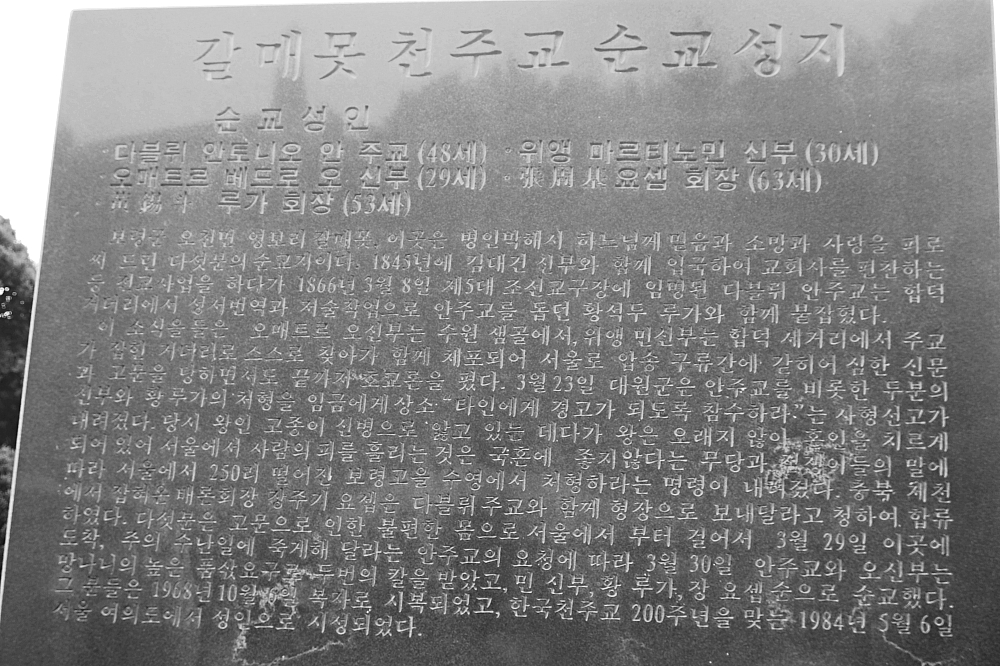 갈매못 천주교 순교성지
순 교 성 인
다블뤼 안토니오 안 주교 (48세) · 위앵 마르티노민 신부 (30세)
오매트르 베드로 오 신부 (29세) · 張周基 요셉 회장 (63세)
· 루가 회장 (53세)
보령군 오천면 영보리 갈매못. 이곳은 병인박해시 하느님께 믿음과 소망과 사랑을 피로
써 드린 다섯분의 순교지이다. 1845년에 김대건 신부와 함께 입국하여 교회사를 편찬하는
등 전교사업을 하다가 1866년 3월 8일 제5대 조선교구장에 임명된 다블뤼 안주교는 합덕
거더리에서 성서번역과 저술작업으로 안주교를 돕던 황석두 루가와 함께 붙잡혔다.
이 소식을들은 오매트르 오신부는 수원 샘골에서, 위앵 민신부는 합덕 세거리에서 주교
가 잡힌 거더리로 스스로 찾아가 함께 체포되어 서울로 압송 구류간에 갇히어 심한 신문
과 고문을 당하면서도 끝까지 호교론을 폈다. 3월 23일 대원군은 안주교를 비롯한 두분의
신부와 황 루가의 처형을 임금에게 상소 "타인에게 경고가 되도록 참수하라."는 사형선고가
내려졌다. 당시 왕인 고종이 신병으로 앓고 있는 데다가 왕은 오래지 않아 혼인을 치르게
되어 있어 서울에서 사람의 피를 흘리는 것은 국혼에 좋지않다는 무당과 점쟁이들의 말에
따라 서울에서 250리 떨어진 보령고을 수영에서 처형하라는 명령이 내려졌다. 충북 제천
에서 잡혀온 배론회장 장주기 요셉은 다블뤼주교와 함께 형장으로 보내달라고 청하여 합류
하였다. 다섯분은 고문으로 인한 불편한 몸으로 서울에서 부터 걸어서 3월 29일 이곳에
도착, 주의 수난일에 죽게해 달라는 안주교의 요청에 따라 3월 30일 안쥬교와 오신부는
망나니의 높은 품삯요구로 두번의 칼을 받았고, 민 신부, 황 루가, 장 요셉 순으로 순교했다.
그 분들은 1968년 10월 일 복자로 시복되었고, 한국천주교 200주년을 맞는 1984년 5월 6일
서울 여의도에서 성인으로 시성되었다.